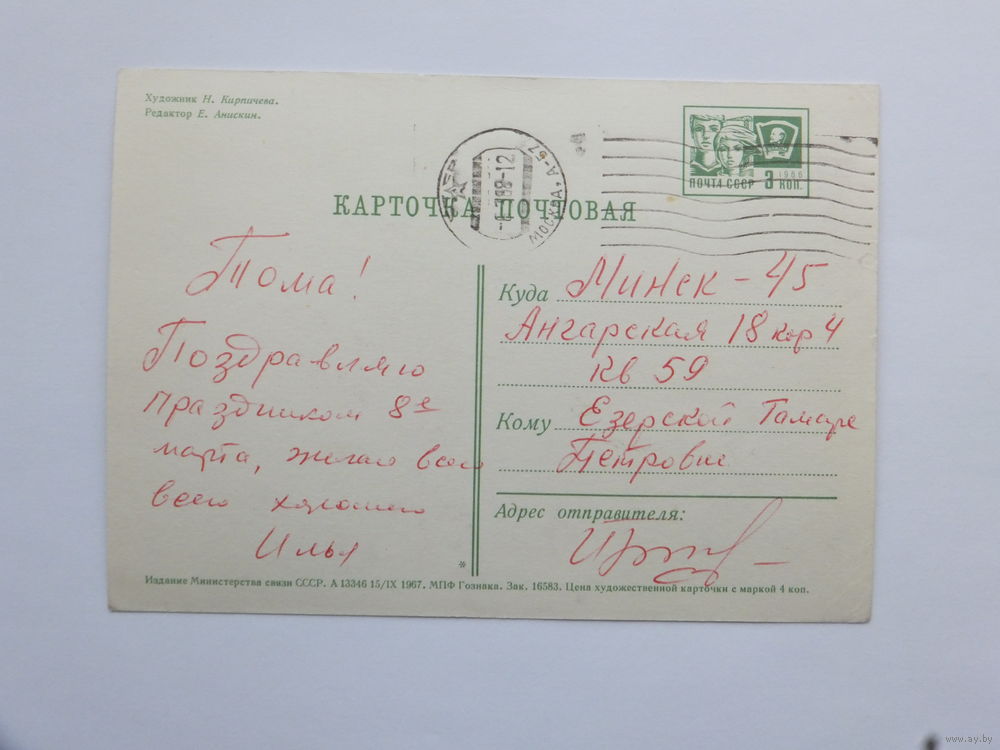 Художник Н. Кирпичева.
Редактор Е. Анискин.
ПОЧТА СССР 3 КОП.
1966
МОСКВА, А-57
КАРТОЧКА ПОЧТОВАЯ
Тома!
Поздравляю
праздником 8е
марта, желаю всего
всего хорошего
Илья
Куда Минск-45
Ангарская 18 кор 4
кв 59
Кому Езерской Тамаре
Петровне
Адрес отправителя:
*
Издание Министерства связи СССР. А 13346 15/IX 1967. МПФ Гознака. Зак. 16583. Цена художественной карточки с маркой 4 коп.
www.ay.by